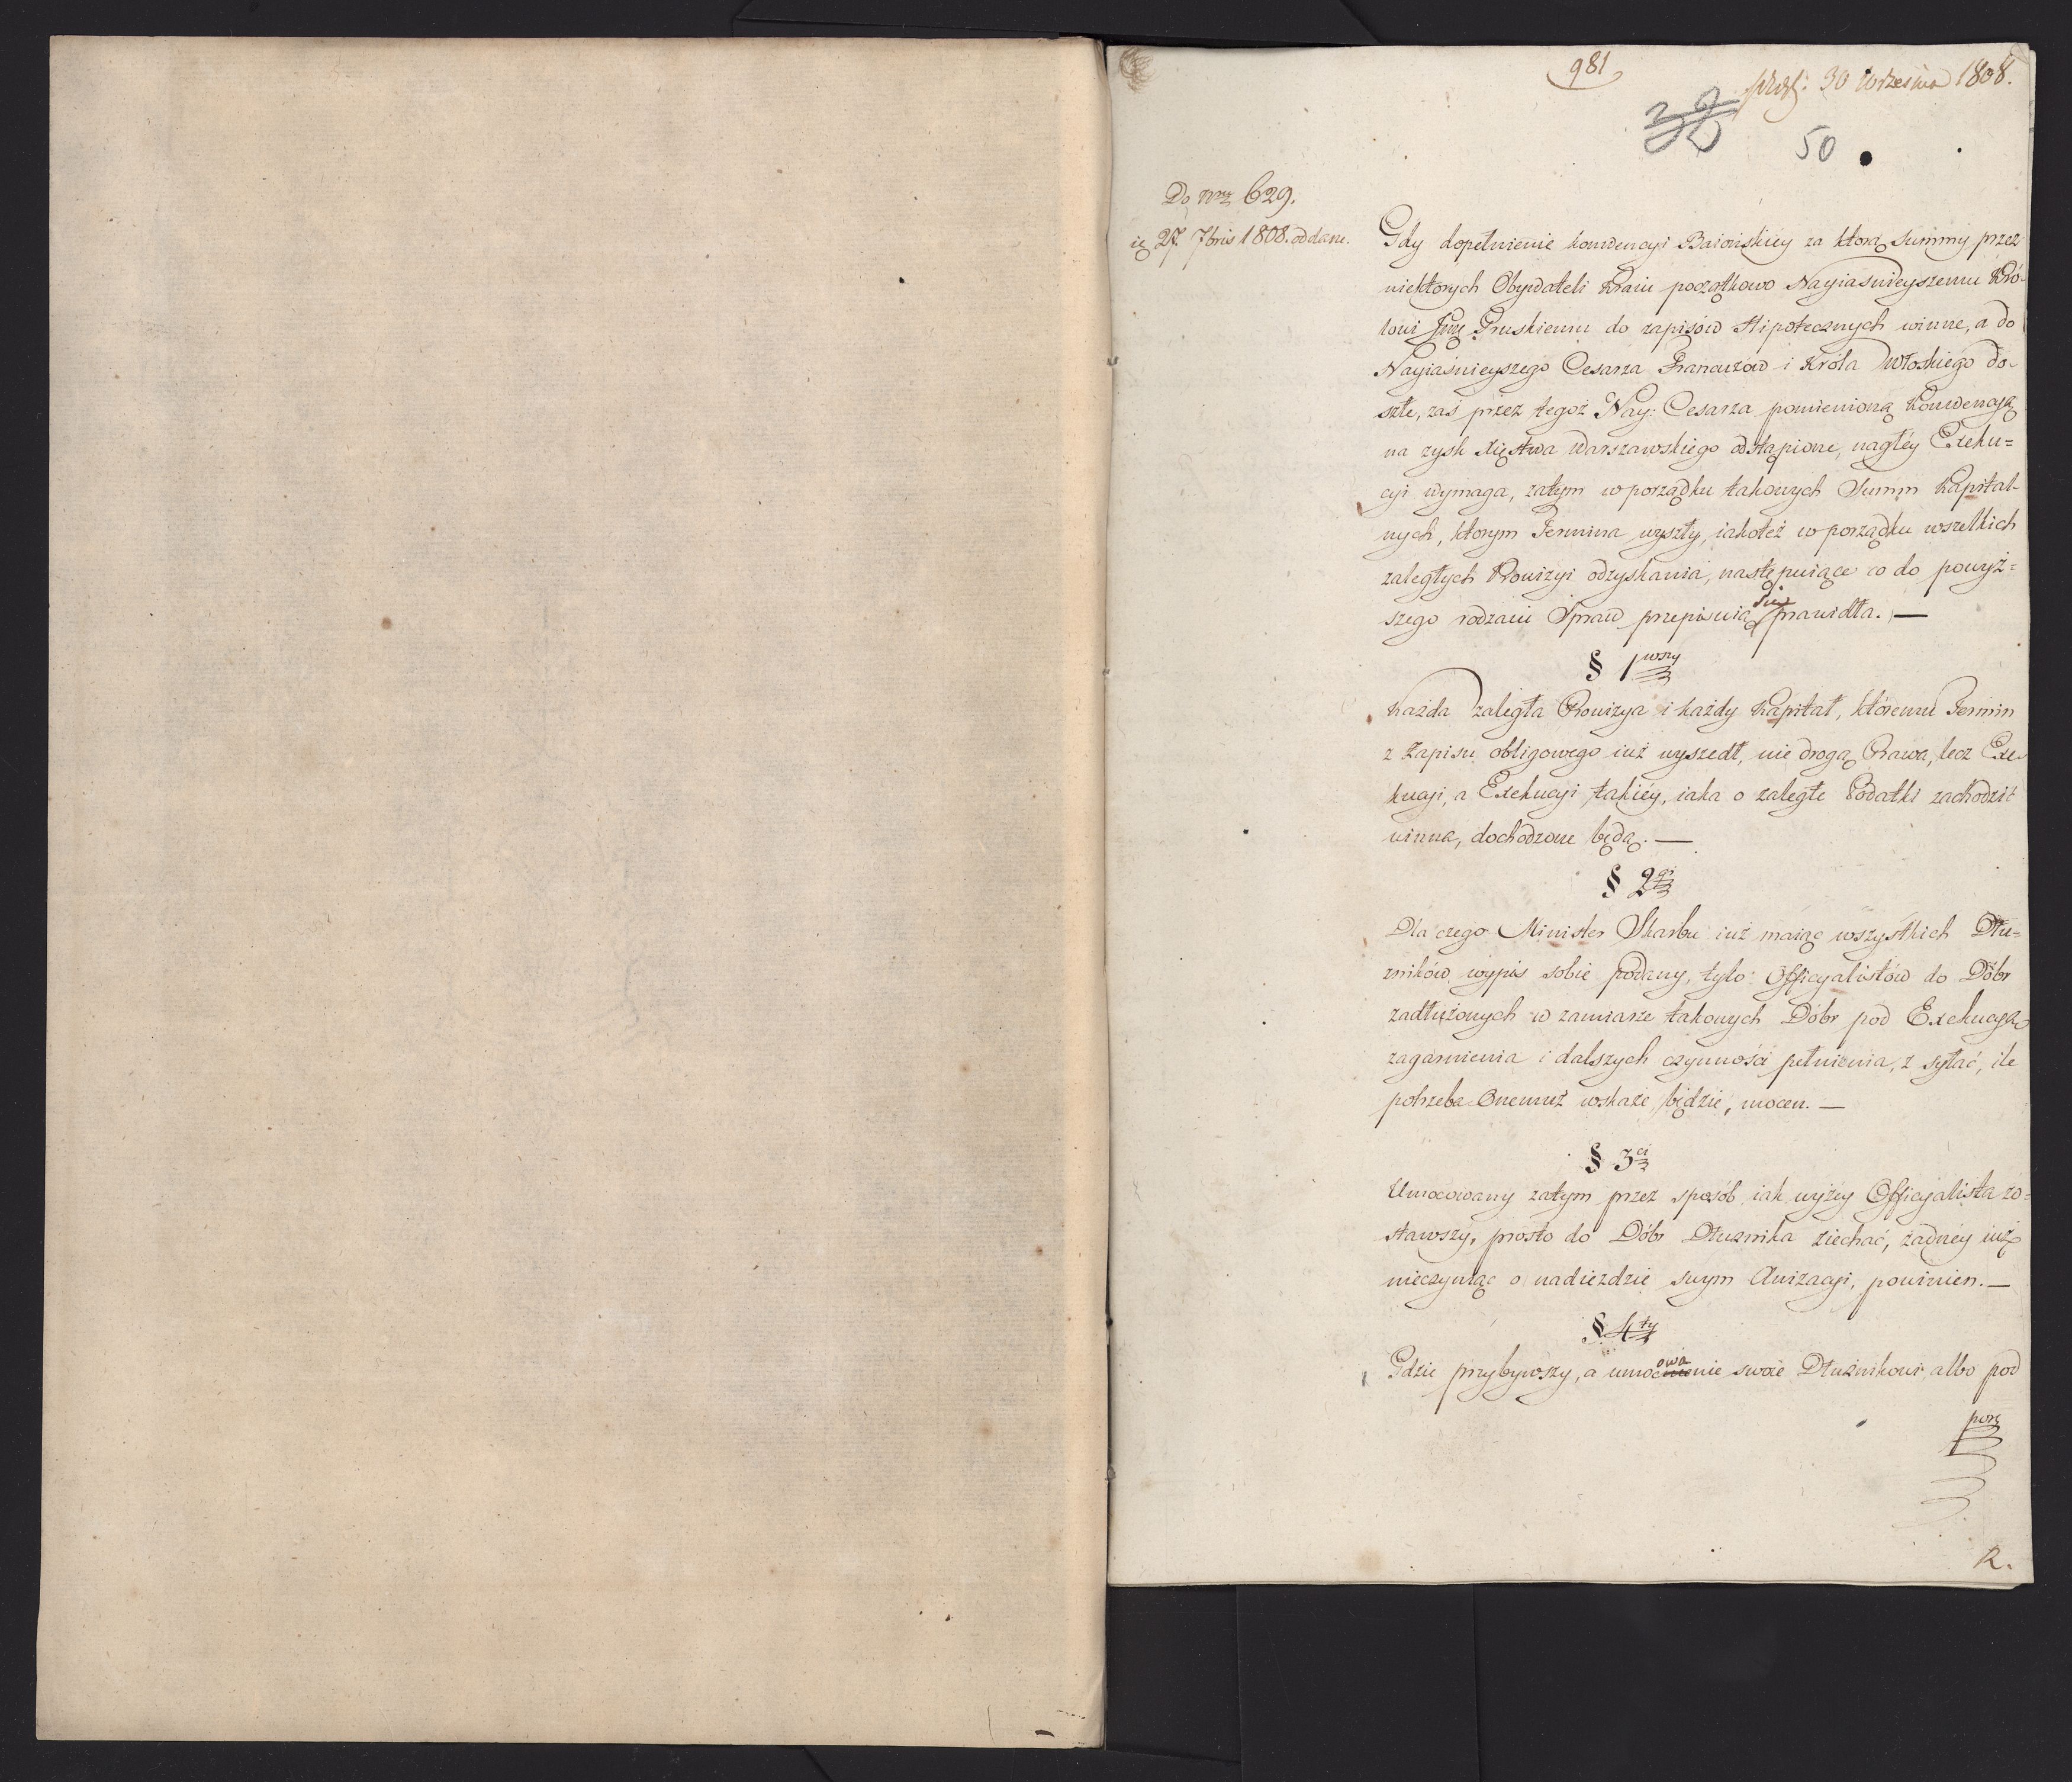 981
30 Września 1808.
50
Do nrz 629.
27. 7bris 1808. oddane.
Gdy dopełnienie konwencyi Baiońskiey za którą Summy przez
niektorych Obywateli Kraiu początkowo Nayiaśnieyszemu Kró-
lowi Pruskiemu do zapisów Hipotecznych winne, a do
Nayiaśnieyszego Cesarza Francuzów i Króla Włoskiego do-
szłe, zaś przez tegoż Nay: Cesarza pomienioną Konwencyą
na zysk Xięstwa Warszawskiego odstąpione, nagłéy Exeku=
cyi wymaga, zatym w porządku takowych Summ Kapital-
nych, ktorym Termina wyszły, iakoteż w porządku wszelkich
zaległych Prowizyi odzyskania, następuiące co do powyż=
szego rodzaiu Spraw przepisuią się prawidła. —
§ 1wszy
Każda zaległa Prowizya i każdy Kapitał, któremu Termin
z Zapisu obligowego iuż wyszedł, nie drogą Prawa, lecz Exe-
kucyi, a Exekucyi takiéy, iaka o zaległe Podatki zachodzić
winna, dochodzone będą. —
§ 2gi
Dla czego Minister Skarbu iuż maiąc wszystkich Dłu=
zników wypis sobie podany, tylo Officyalistów do Dóbr
zadłużonych w zamiarze takowych Dóbr pod Exekucyą
zagarnienia i dalszych czynności pełnienia, z syłać, ile
potrzeba Onemuż wskaże będzie, mocen. —
§ 3ci
Umocowany zatym przez sposób iak wyżey Officyalista zo=
stawszy, prosto do Dóbr Dłuznika ziechać, żadnéy iuż
nieczyniąc o nadieździe swym Awizacyi, powinien. —
§ 4ty
Gdzie przybywszy, a umocowanie swoie Dłużnikowi albo pod
porę
R.